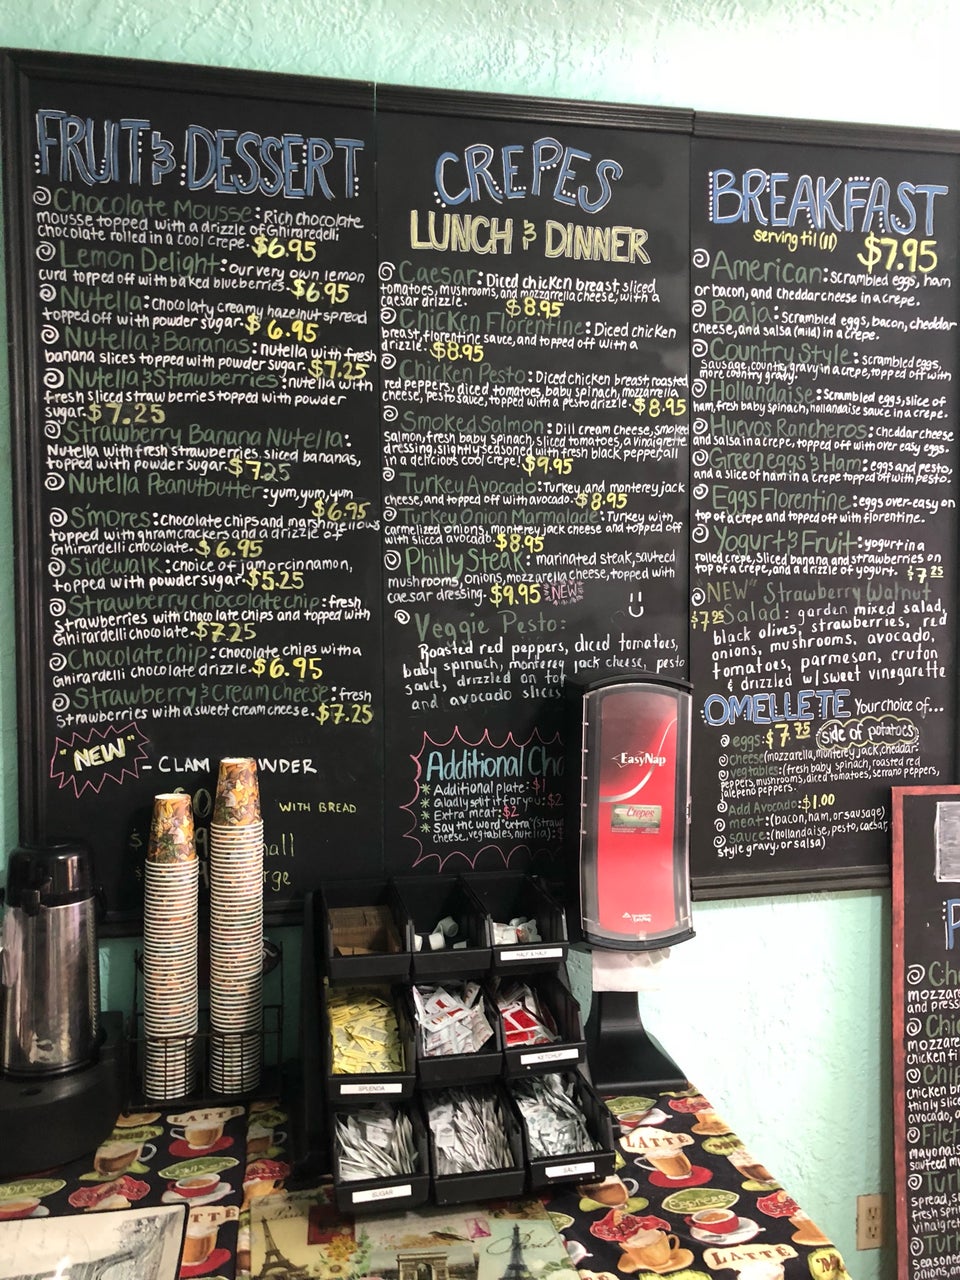 FRUIT & DESSERT
Chocolate Mousse: Rich chocolate
mousse topped with a drizzle of Ghiraredelli
chocolate rolled in a cool crepe. $6.95
Lemon Delight: our very own lemon
curd topped off with baked blueberries. $6.95
Nutella: chocolaty creamy hazelnut spread
topped off with powder sugar. $6.95
Nutella & Bananas: nutella with fresh
banana slices topped with powder sugar. $7.25
Nutella & Strawberries: nutella with
fresh sliced strawberries topped with powder
sugar. $7.25
Strawberry Banana Nutella:
Nutella with fresh strawberries, sliced bananas,
topped with powder sugar. $7.25
Nutella Peanutbutter: yum, yum, yum
$6.95
S'mores: chocolate chips and marshmellows
topped with ghramcrackers and a drizzle of
Ghirardelli chocolate. $6.95
Sidewalk: choice of jam or cinnamon,
topped with powder sugar. $5.25
Strawberry chocolate chip: fresh
strawberries with chocolate chips and topped with
Ghirardelli chocolate. $7.25
Chocolate chip: chocolate chips with a
Ghirardelli chocolate drizzle. $6.95
Strawberry & Cream Cheese: fresh
strawberries with a sweet cream cheese. $7.25
"NEW" - CLAM
WITH BREAD
CREPES
LUNCH & DINNER
Caesar: Diced chicken breast, sliced
tomatoes, mushrooms, and mozzarella cheese, with a
caesar drizzle. $8.95
Chicken Florentine: Diced chicken
breast, florentine sauce, and topped off with a
drizzle. $8.95
Chicken Pesto: Diced chicken breast, roasted
red peppers, diced tomatoes, baby spinach, mozzarella
cheese, pesto sauce, topped with a pesto drizzle. $8.95
Smoked Salmon: Dill cream cheese, smoked
salmon, fresh baby spinach, sliced tomatoes, a vinaigrette
dressing, slightly seasoned with fresh black pepper, all
in a delicious cool crepe! $9.95
Turkey Avocado: Turkey, and monterey jack
cheese, and topped off with avocado. $8.95
Turkey Onion Marmalade: Turkey with
carmelized onions, monterey jack cheese and topped off
with sliced avocado. $8.95
Philly Steak: marinated steak, sauteed
mushrooms, onions, mozzarella cheese, topped with
caesar dressing. $9.95 NEW
Veggie Pesto:
Roasted red peppers, diced tomatoes,
baby spinach, monterey jack cheese, pesto
sauce, drizzled on top
and avocado slices
Additional
* Additional plate: $1
* Gladly split it for you: $2
* Extra meat: $2
* Say the word "extra"
cheese, vegtables, nutella):
BREAKFAST
serving til (11) $7.95
American: scrambled eggs, ham
or bacon, and cheddar cheese in a crepe.
Baja: Scrambled eggs, bacon, cheddar
cheese, and salsa (mild) in a crepe.
Country Style: scrambled eggs,
sausage, country gravy in a crepe, topped off with
more country gravy.
Hollandaise: Scrambled eggs, slice of
ham, fresh baby spinach, hollandaise sauce in a crepe.
Huevos Rancheros: cheddar cheese
and salsa in a crepe, topped off with over easy eggs.
Green eggs & Ham: eggs and pesto,
and a slice of ham in a crepe topped off with pesto.
Eggs Florentine: eggs over-easy on
top of a crepe and topped off with florentine.
Yogurt & Fruit: yogurt in a
rolled crepe, sliced banana and strawberries on
top of a crepe, and a drizzle of yogurt. $7.25
"NEW" Strawberry Walnut
$7.95 Salad: garden mixed salad,
black olives, strawberries, red
onions, mushrooms, avocado,
tomatoes, parmesan, cruton
& drizzled w/ sweet vinegarette
OMELLETE Your choice of...
eggs: $7.75 side of potatoes
cheese (mozzarella, monterey jack, cheddar
vegtables: (fresh baby spinach, roasted red
peppers, mushrooms, diced tomatoes, serrano peppers,
jalepeno peppers.
Add Avocado: $1.00
meat: (bacon, ham, or sausage)
sauce: (hollandaise, pesto, caesar,
style gravy, or salsa)
EasyNap
Crepes
EasyNap
HALF & HALF
SPLENDA
KETCHUP
SUGAR
SALT
mozzare
and press
mozzare
chicken
chicken br
thinly slice
avocado, a
Filet
mayonais
sauteed mu
spread,
fresh spri
vinaigret
seasoned
onions, an
LATTÉ
LATTÉ
LATTÉ
Paris